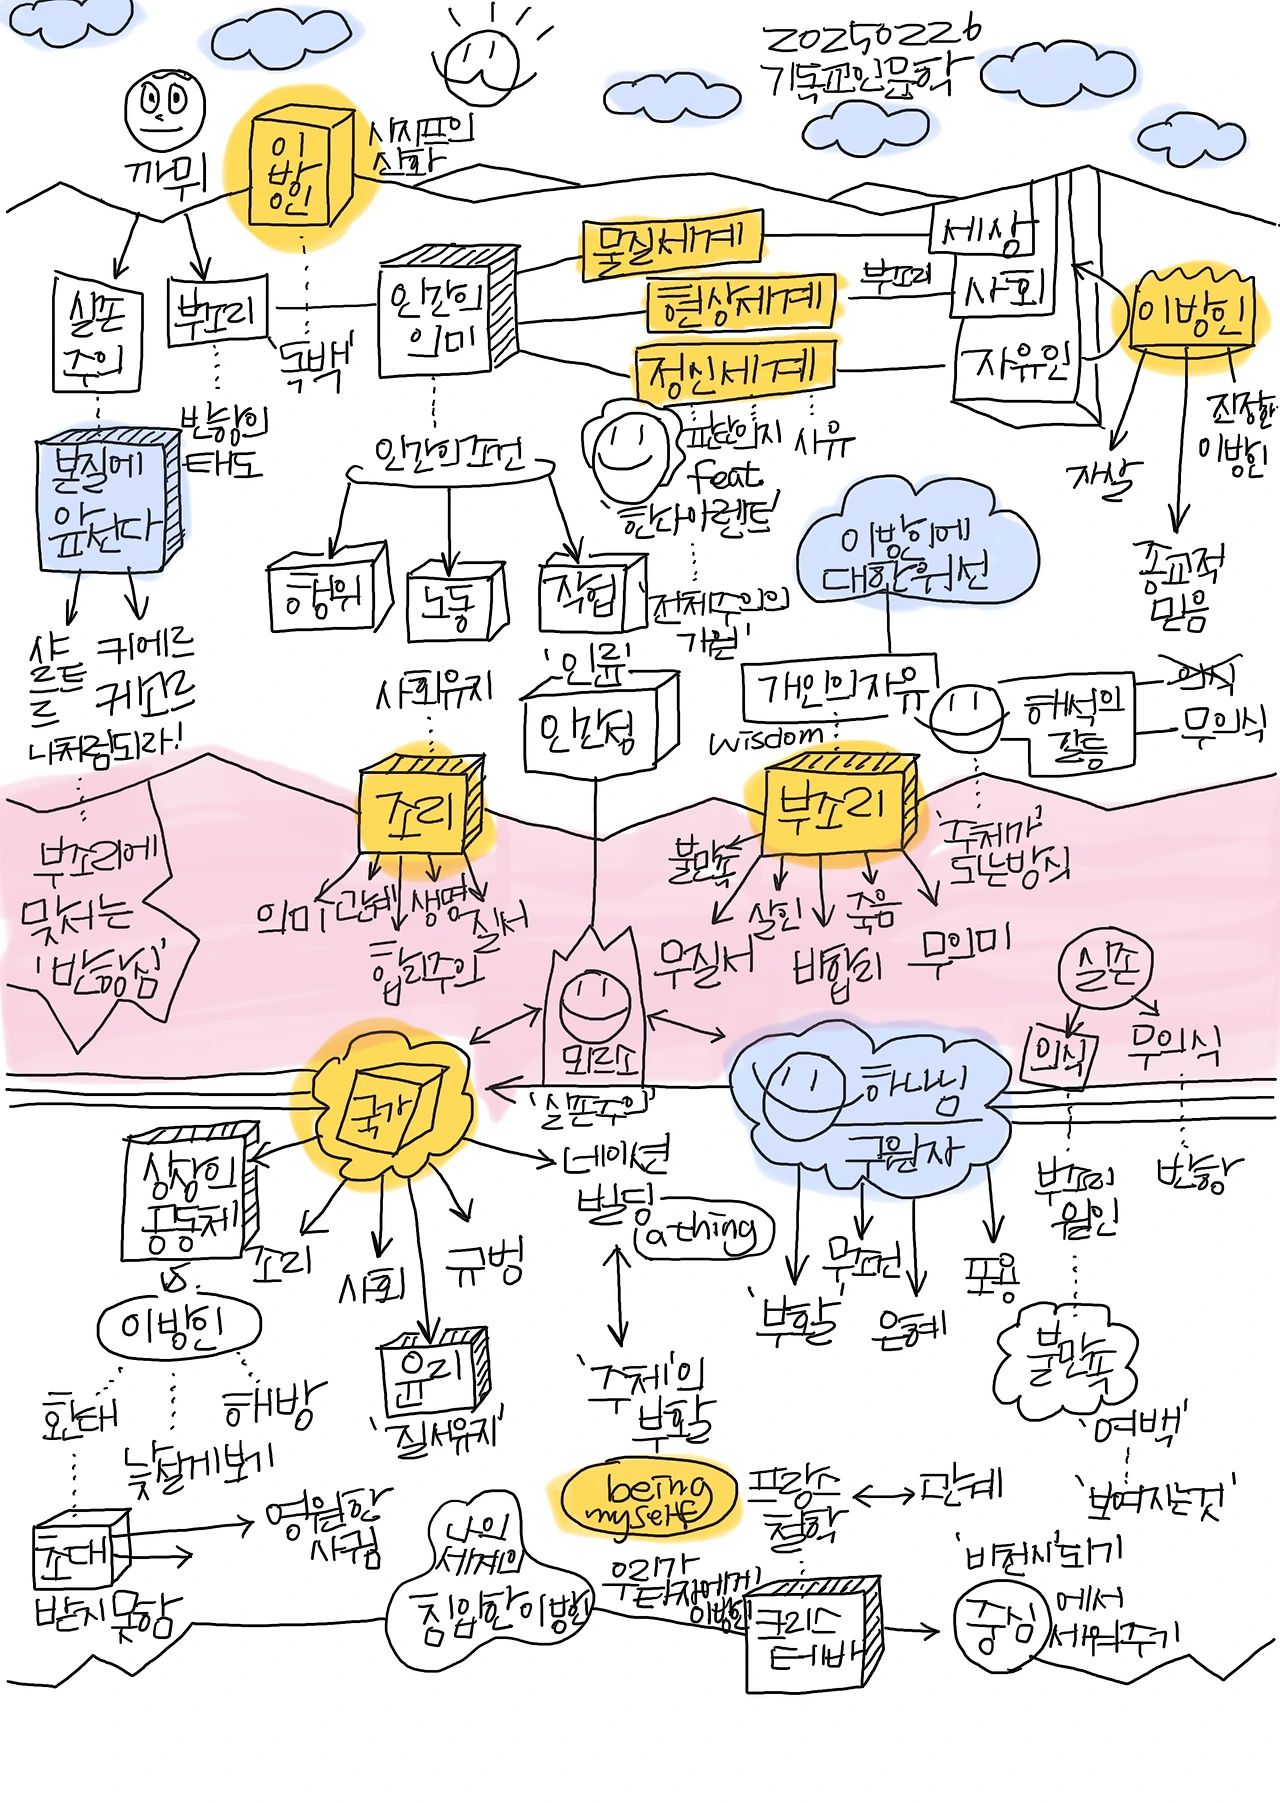 20250226
기독교인문학
까뮈
이
방
인
시지프의
신화
실존
주의
부조리
'독백'
인간의
의미
물질세계
현상세계
정신세계
부조리
세상
사회
자유인
이방인
자살
종교적
믿음
진정한
이방인
반항의
태도
본질에
앞선다
샤
르트
르
키에르
케고르
나처럼되라!
인간의조건
행위
노동
작업
사회유지
'인류'
인간성
판단의지
사유
feat
'한나아렌트'
전체주의의
기원'
이방인에
대한위선
개인의자유
wisdom
해석의
갈등
의식
무의식
조리
의미
관계
생명
질서
합리주의
부조리
불만족
무질서
살인
비합리
죽음
무의미
'주체가'
되는방식
부조리에
맞서는
'반항심'
뫼르소
'실존주의'
실존
의식
무의식
부조리
원인
반항
국가
상상의
공동체
vs.
이방인
환대
낯설게보기
해방
조리
사회
규범
윤리
'질서유지'
네이션
빌딩
a thing
'주체'의
부활
being
myself
하나님
구원자
'부활'
무조건
은혜
포용
불만족
'여백'
'보여지는것'
초대
받지못함
영원한
사귐
나의
세계의
침입한이방인
프랑스
철학
관계
우리가
타자에게
이방인
크리스
테바
'바련시'되기
중심
에서
세워주기